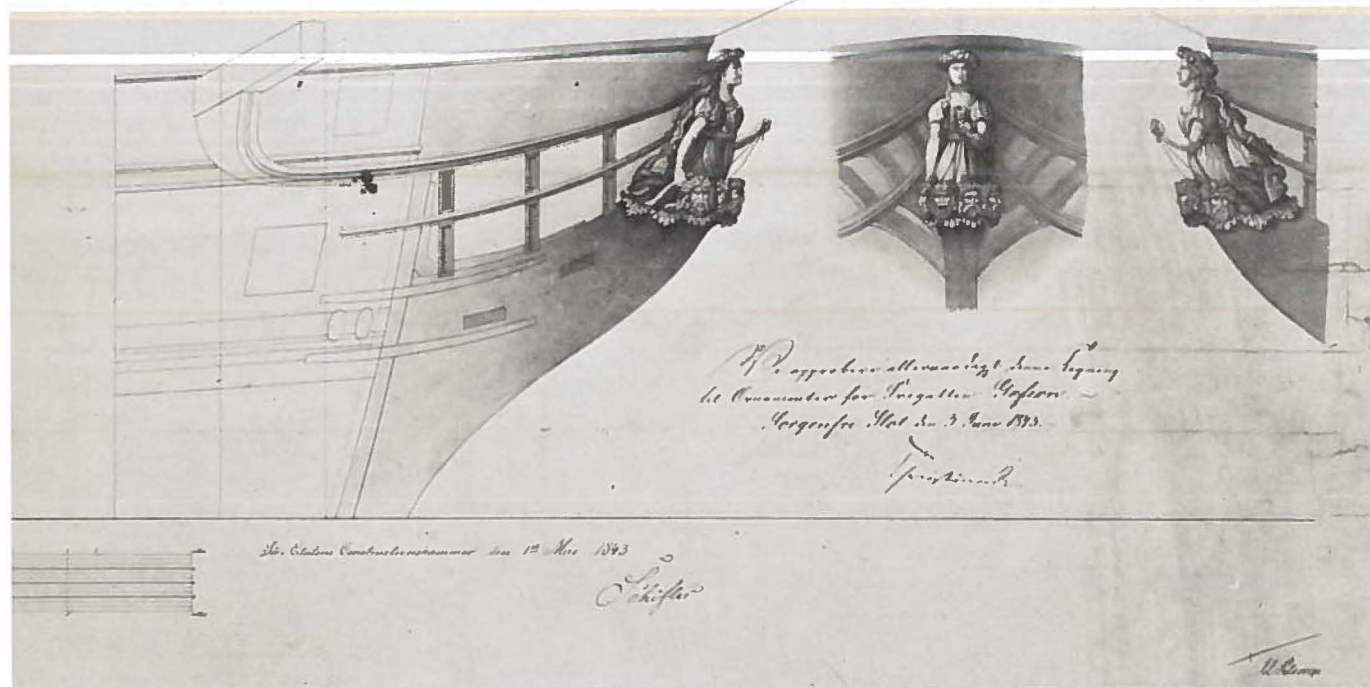 Vi approbere allernaadigst denne Tegning
til Ornamenter for Fregatten Gefion
Sorgenfri Slot den 3 Juni 1843.
Christian R
Søe Etatens Constructionskammer den 1ste Mai 1843
Schifter